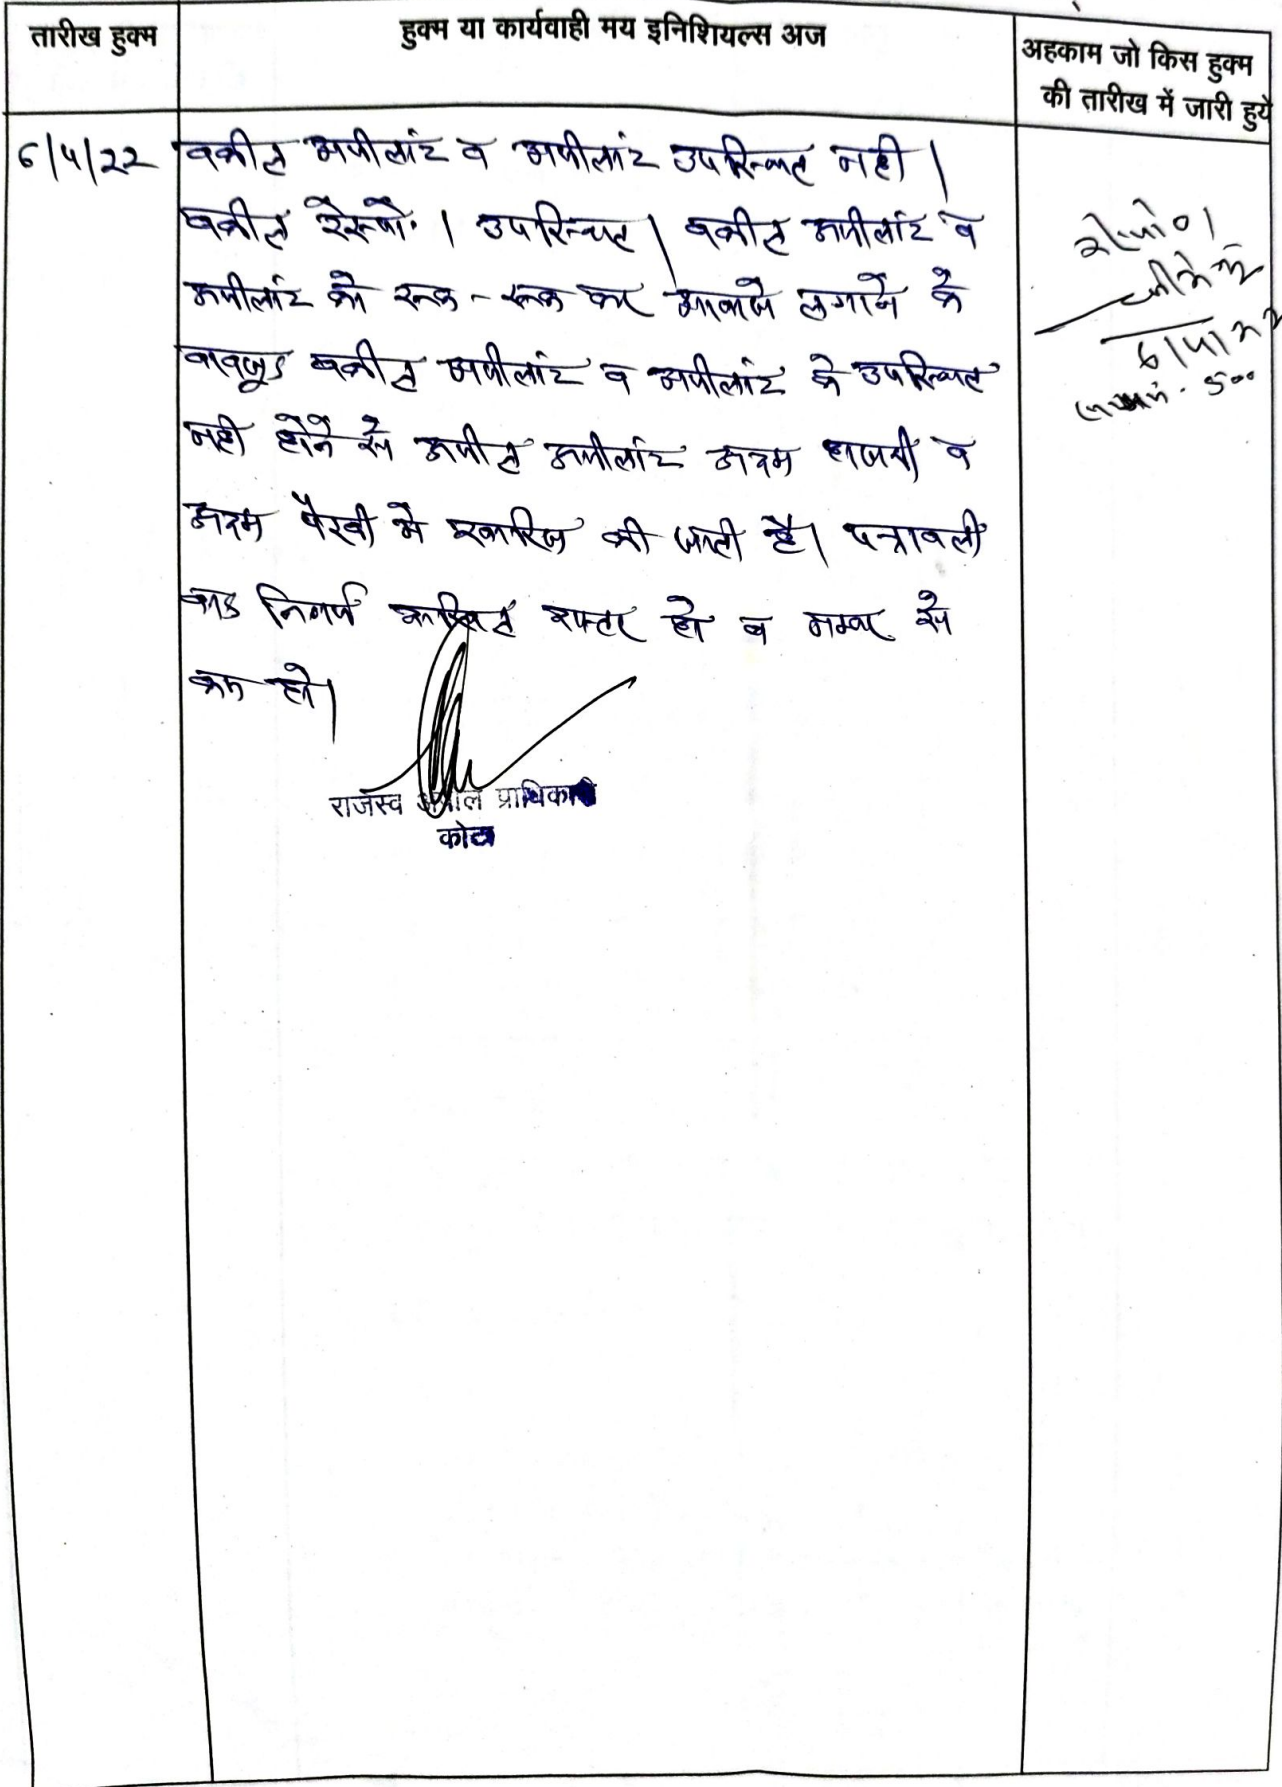 तारीख हुक्म
हुक्म या कार्यवाही मय इनिशियल्स अज
अहकाम जो किस हुक्म
की तारीख में जारी हुये
6/4/22 वकील अपीलांट व अपीलांट उपस्थित नही।
वकील रेस्पो. 1 उपस्थित। वकील अपीलांट व
अपीलांट को रूक-रूक कर आवाजे लगाने के
बावजूद वकील अपीलांट व अपीलांट के उपस्थित
नही होने से अपील अपीलांट अदम हाजरी व
अदम पैरवी मे खारिज की जाती है। पत्रावली
बाद निर्णय दाखिल दफ्तर हो व नम्बर से
कम हो।
राजस्व अपील प्राधिकारी
कोटा
रेस्पो० 1
6/4/22
500